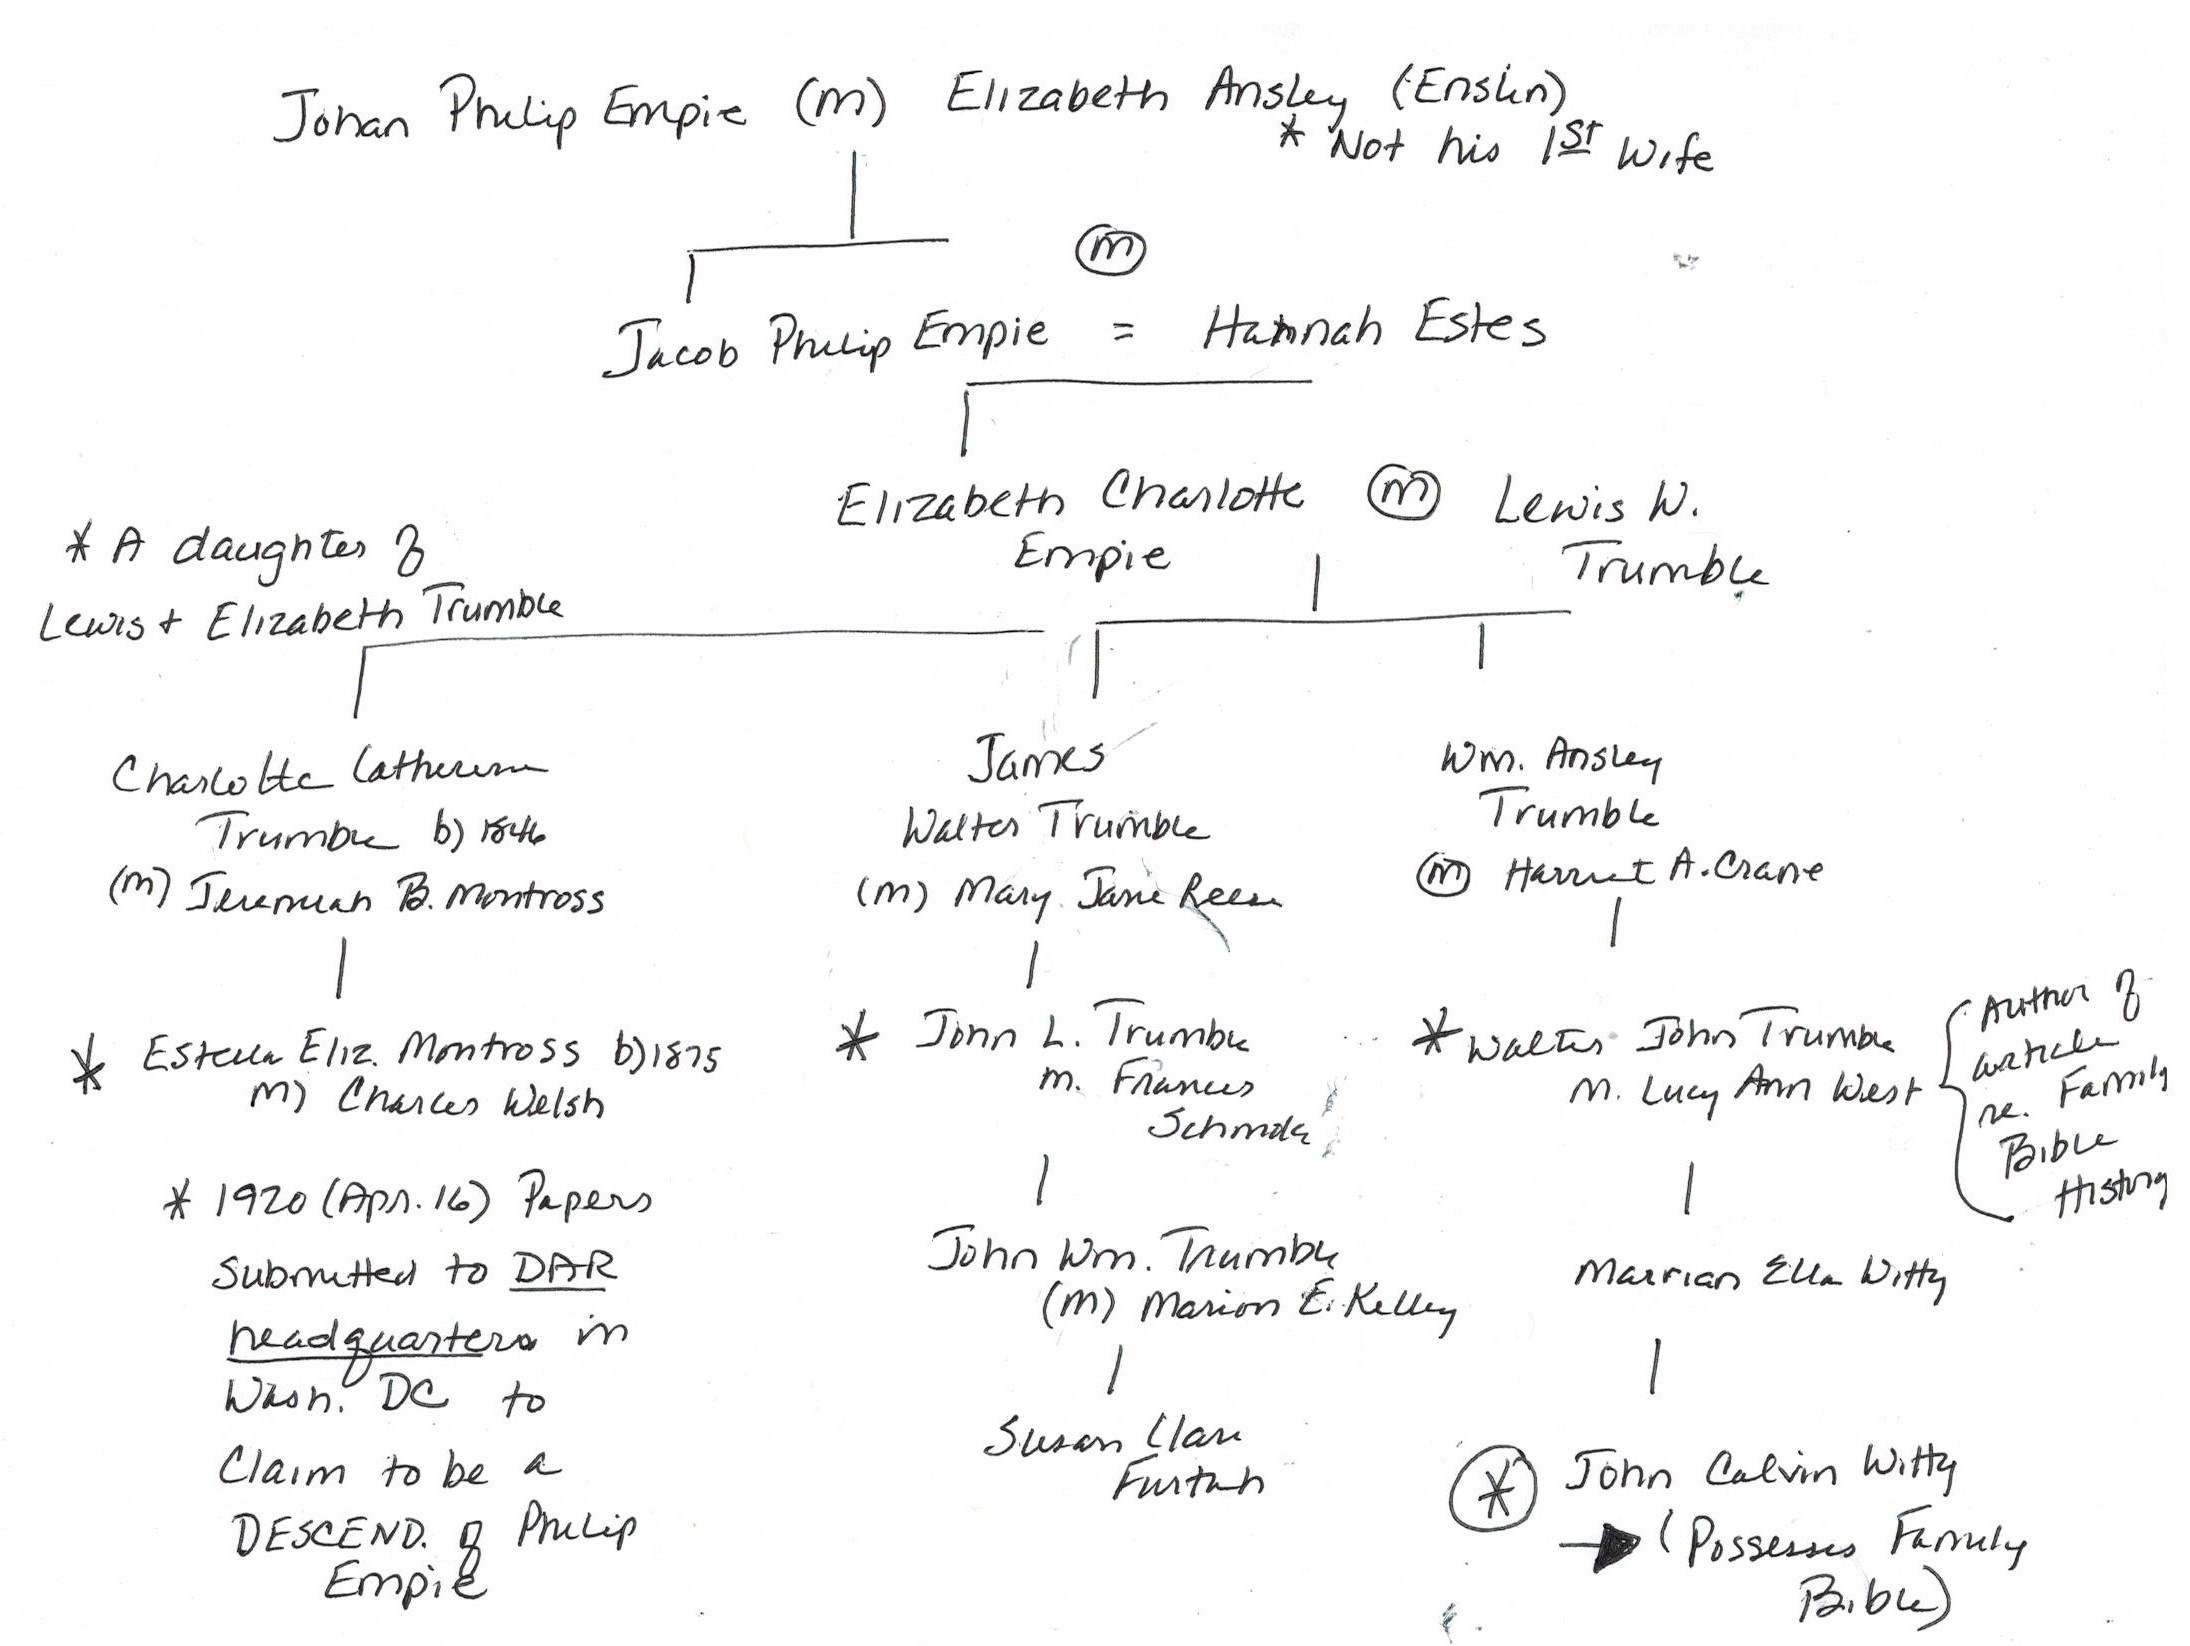 Johan Philip Empie (m) Elizabeth Ansley (Enslin)
* Not his 1st Wife
(m)
Jacob Philip Empie = Hannah Estes
Elizabeth Charlotte (m) Lewis W.
Empie Trumble
* A daughter of
Lewis + Elizabeth Trumble
Charlotte Catherine
Trumble b) 1846
(m) Jeremiah B. Montross
* Estella Eliz. Montross b) 1875
m) Charles Welsh
* 1920 (Apr. 16) Papers
Submitted to DAR
headquarters in
Wash. DC to
Claim to be a
DESCEND. of Philip
Empie
James
Walter Trumble
(m) Mary Jane Reese
* John L. Trumble
m. Frances
John Wm. Trumble
(m) Marion E. Kelley
Susan Clare
Wm. Ansley
Trumble
(m) Harriet A. Crane
* Walter John Trumble
m. Lucy Ann West
Author of
article
re. Family
Bible
History
Marrian Ella Witty
* John Calvin Witty
→ (Possesses Family
Bible)